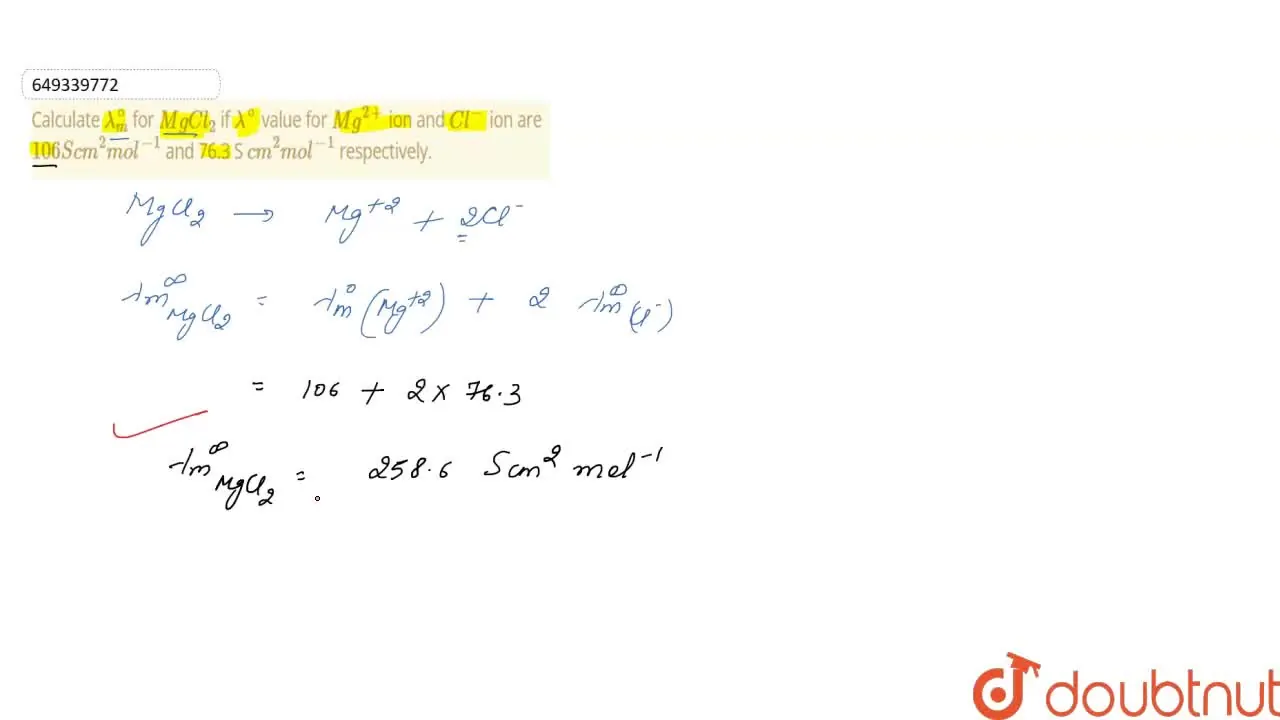 649339772
Calculate λ°ₘ for MgCl₂ if λ° value for Mg²⁺ ion and Cl⁻ ion are
106Scm²mol⁻¹ and 76.3 S cm²mol⁻¹ respectively.
MgCl₂ → Mg⁺² + 2Cl⁻
λm^∞ MgCl₂ = λm° (Mg⁺²) + 2 λm^∞ (Cl⁻)
= 106 + 2 × 76.3
λm^∞ MgCl₂ = 258.6 Scm² mol⁻¹
doubtnut